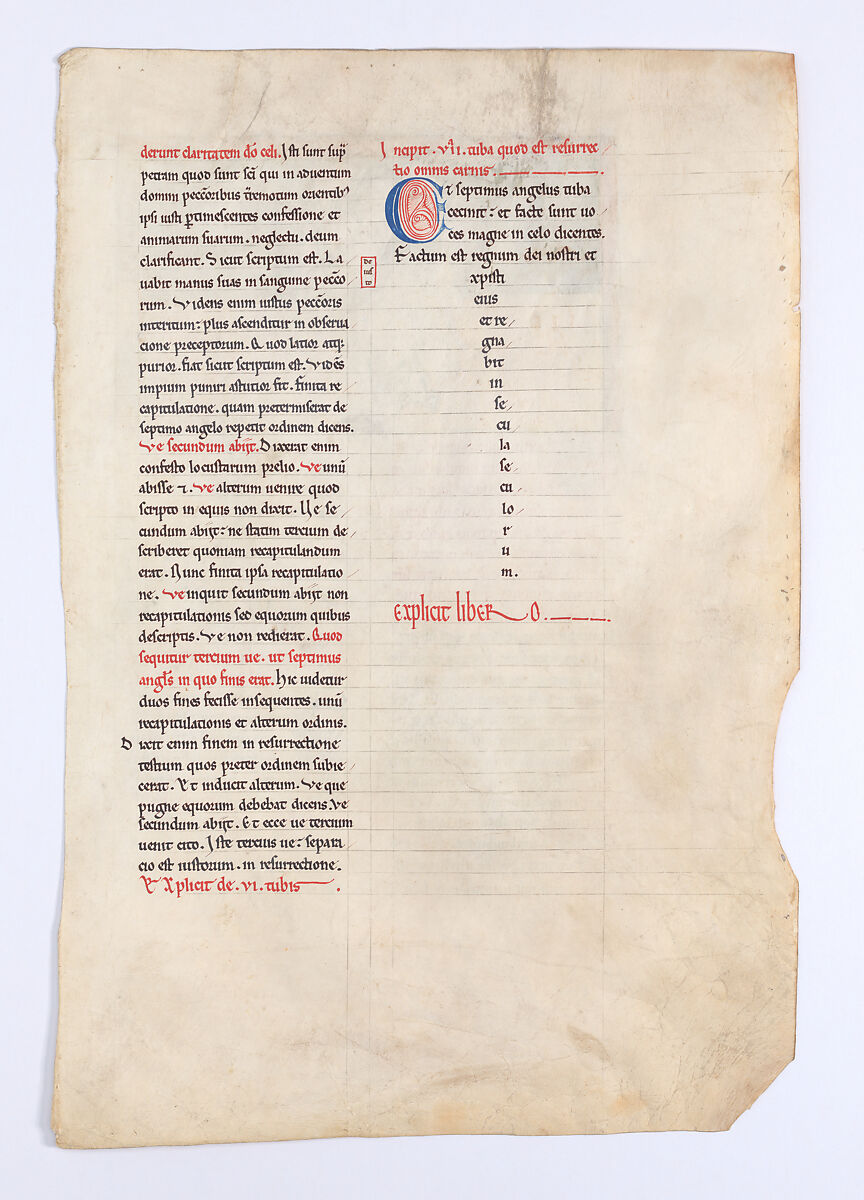 derunt claritatem dõ celi. Isti sunt sup̃
petram quod sunt sc̃i qui in aduentum
domini pecc̃oribus t̃remotum orientibꝰ
ipsi iusti ꝑtimescentes confessione et
animarum suarum . neglectu . deum
clarificant . Sicut scriptum est . La
uabit manus suas in sanguine pecco
rum . Videns enim iustus pecc̃oris
interitum : plus ascenditur in obserua
cione preceptorum . Quod latior atq:
purior . fiat sicut scriptum est . Vidẽs
impium puniri astutior fit . Finita re
capitulatione . quam pretermiserat de
septimo angelo repetit ordinem dicens.
Ve secundum abijt . Dixerat enim
confesto locustarum prelio . Ve unũ
abisse ⁊ . Ve alterum uenire quod
scripto in equis non dixit . Ue se
cundum abijt : ne statim tercium de
scriberet quoniam recapitulandum
erat . Nunc finita ipsa recapitulatio
ne . Ve inquit secundum abijt non
recapitulationis sed equorum quibus
descriptis . Ve non redierat . Quod
sequitur tercium ue . ut septimus
angl̃s in quo finis erat . hic uidetur
duos fines fecisse insequentes . unũ
recapitulationis et alterum ordinis.
Dixit enim finem in resurrectione
testium quos preter ordinem subie
cerat . Et inducit alterum . Ve que
pugne equorum debebat dicens . Ve
secundum abijt . Et ecce ue tercium
uenit cito . Iste tercius ue : separa
cio est iustorum . in resurrectione .
Explicit de . VI . tubis .
de
ius
to
Incipit . VII . tuba quod est resurrec
tio omnis carnis .
Et septimus angelus tuba
cecinit : et facte sunt uo
ces magne in celo dicentes.
Factum est regnum dei nostri et
xpisti
eius
et re
gna
bit
in
se
cu
la
se
cu
lo
r
u
m .
Explicit liber O .